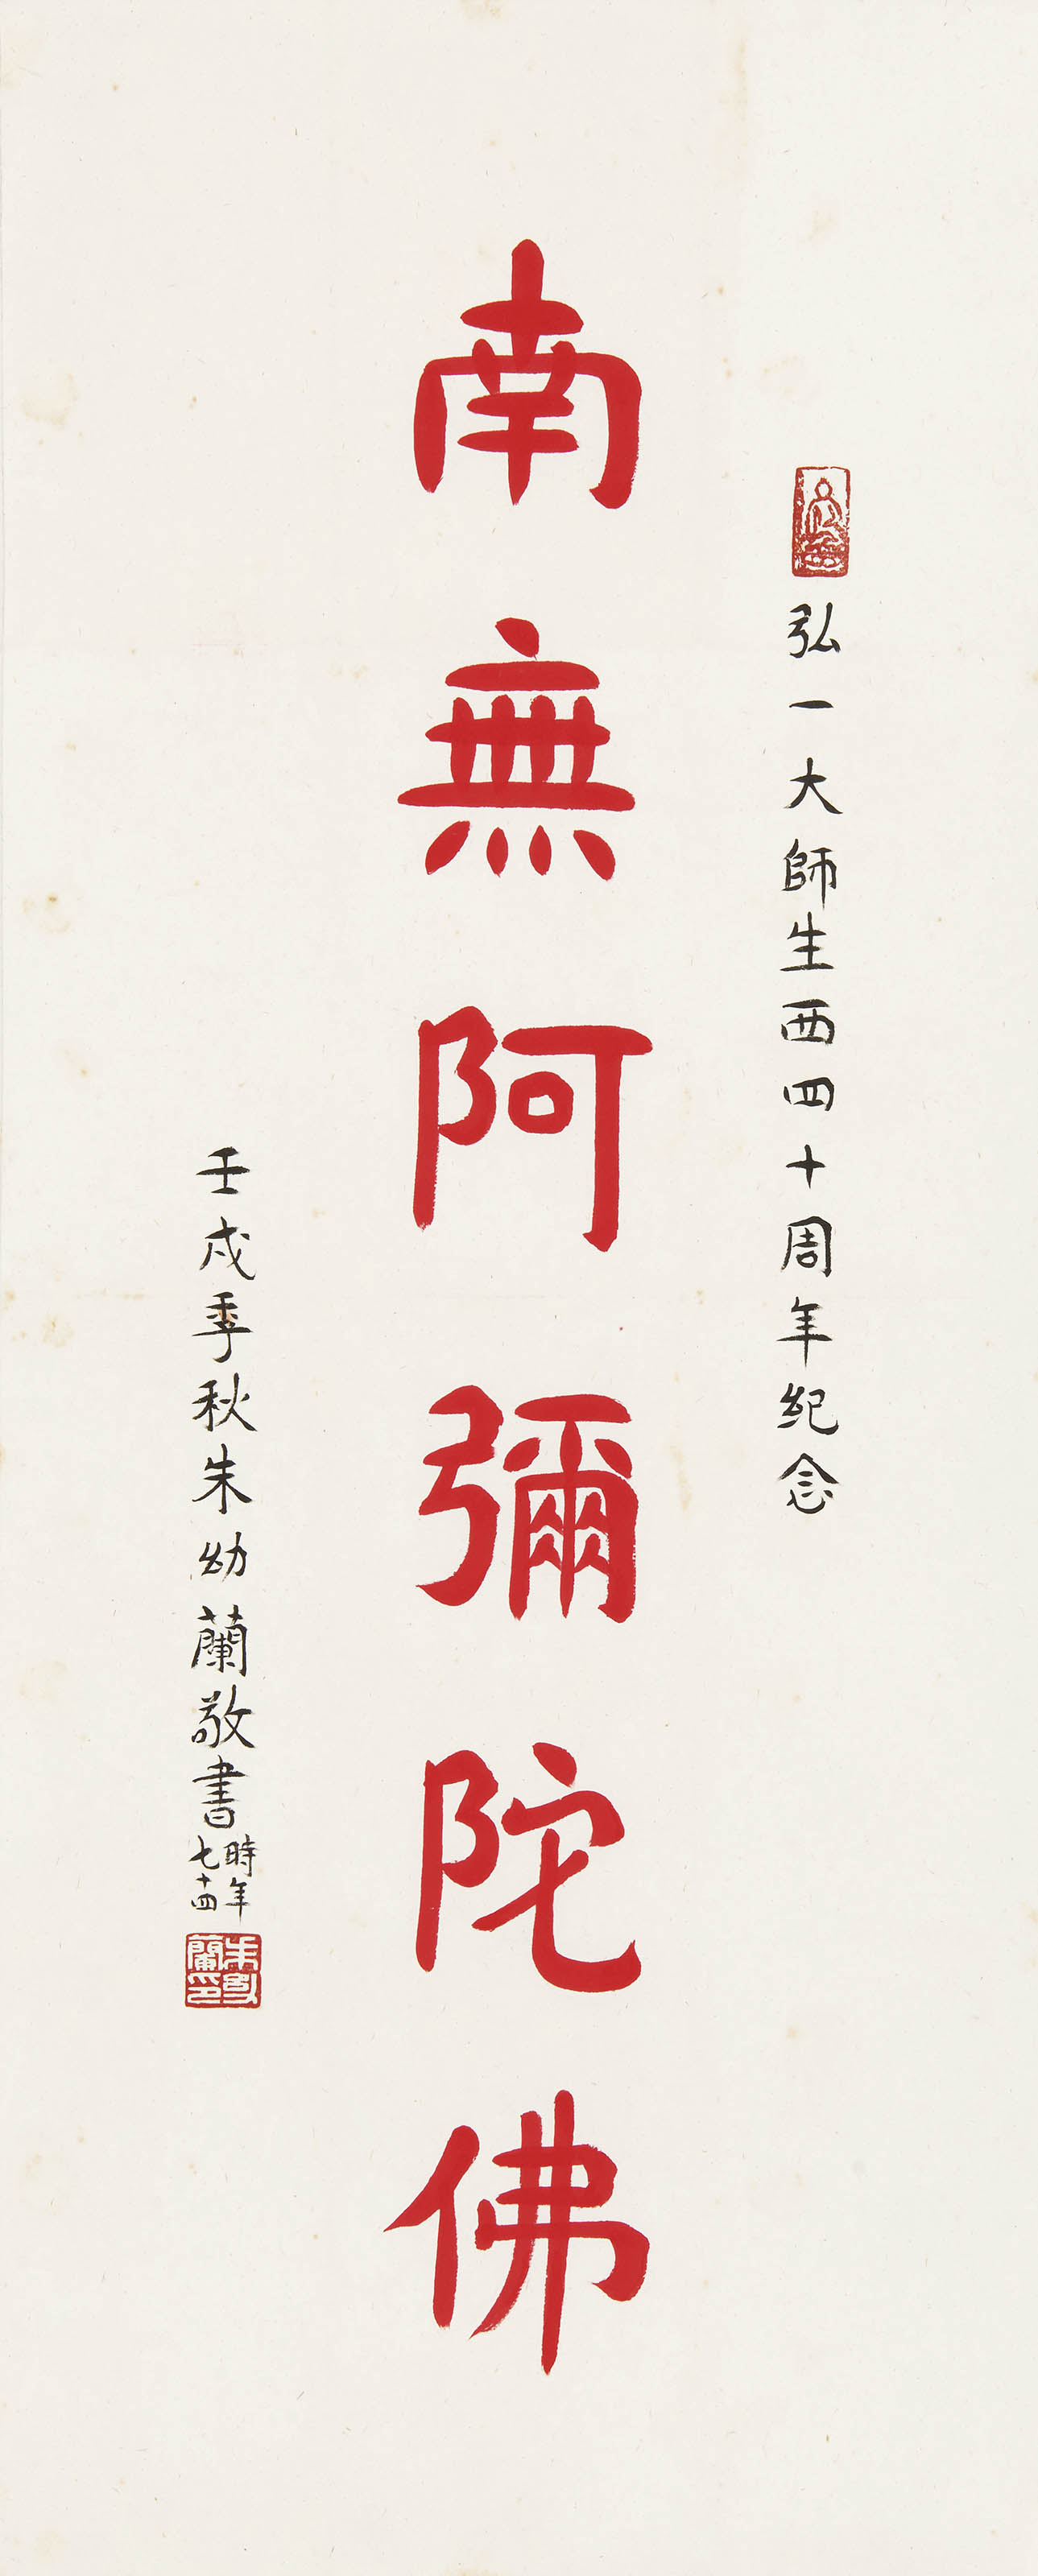 弘一大師生西四十周年紀念
南無阿彌陀佛
壬戌季秋朱幼蘭敬書
時年
七十四
朱幼
蘭印